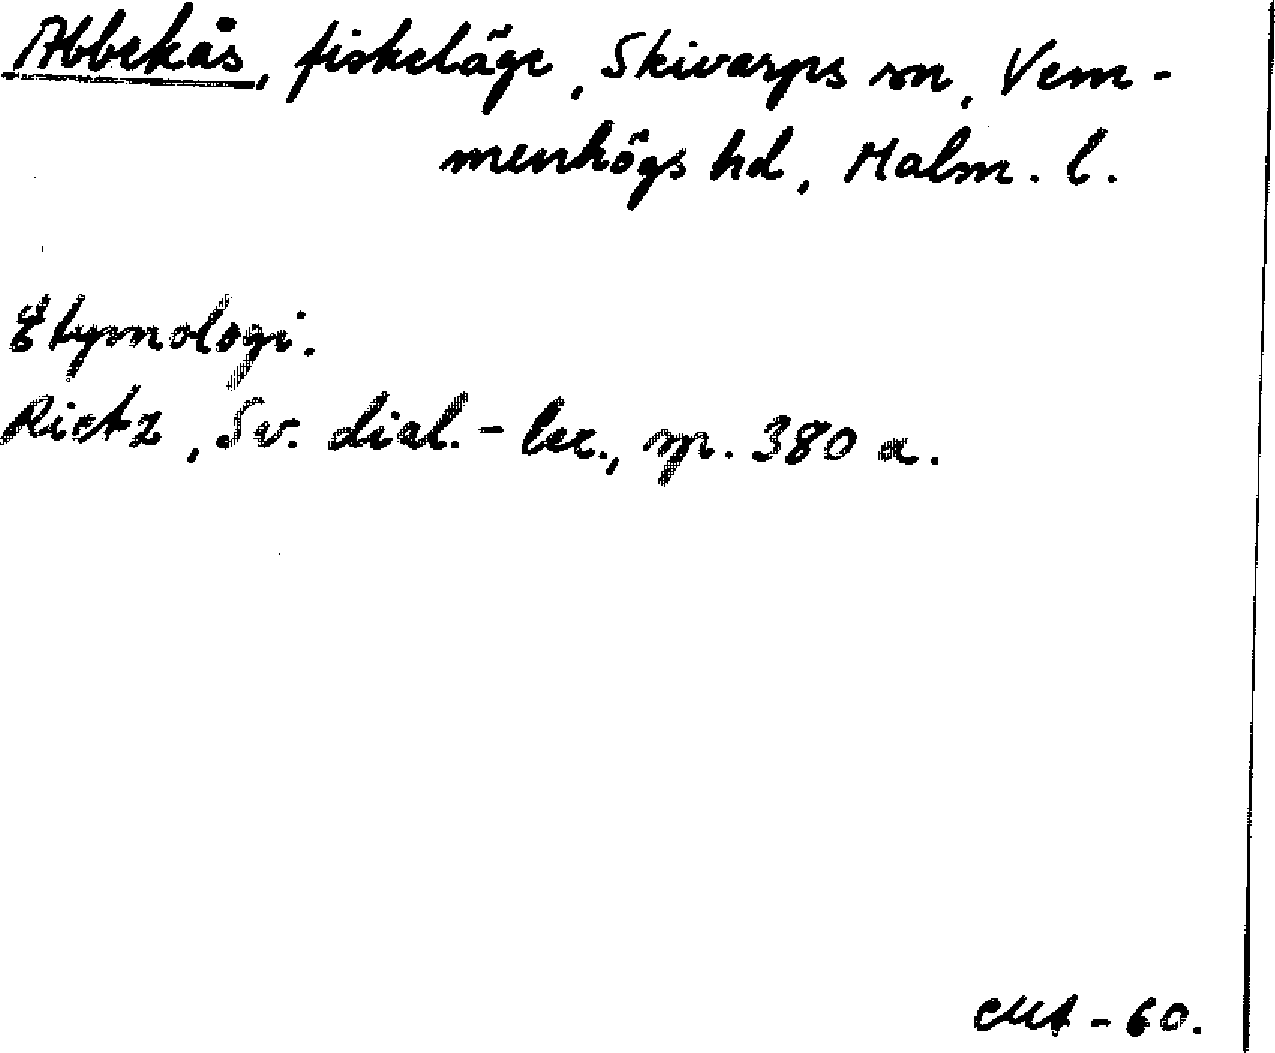 Abbekås, fiskeläge, Skivarps sn, Vem-
menhögs hd, Malm. l.
Etymologi.
Rietz, Sv. dial.-lex., sp. 380 a.
-60.